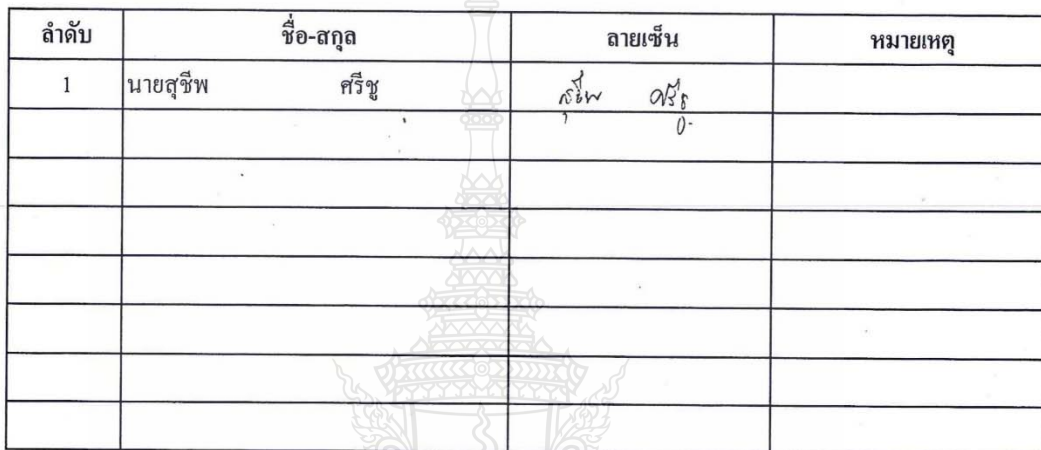 ลำดับ ชื่อ-สกุล ลายเซ็น หมายเหตุ
1 นายสุชีพ ศรีชู สุชีพ ศรีชู